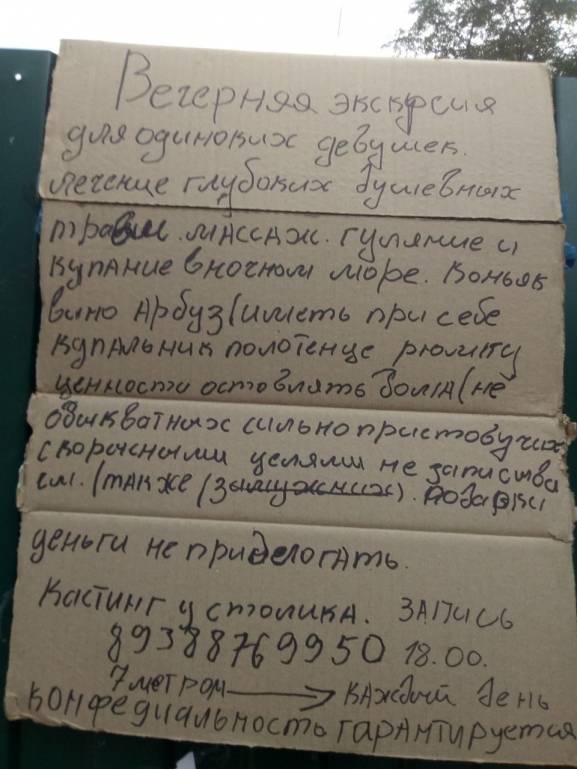 Вечерняя экскурсия
для одиноких девушек.
лечение глубоких душевных
травм. массаж. гуляние и
купание в ночном море. Коньяк
вино Арбуз (иметь при себе
купальник полотенце рюмку
ценности оставлять дома (не
обыкватных сильно пристовучих
с корысными целями не записыва
ем. (также (замужних). Подарки
деньги не приделогать.
Кастинг у столика. ЗАПИСЬ
89388769950 18.00.
7 метром → каждый день
конфедиальность гарантируется